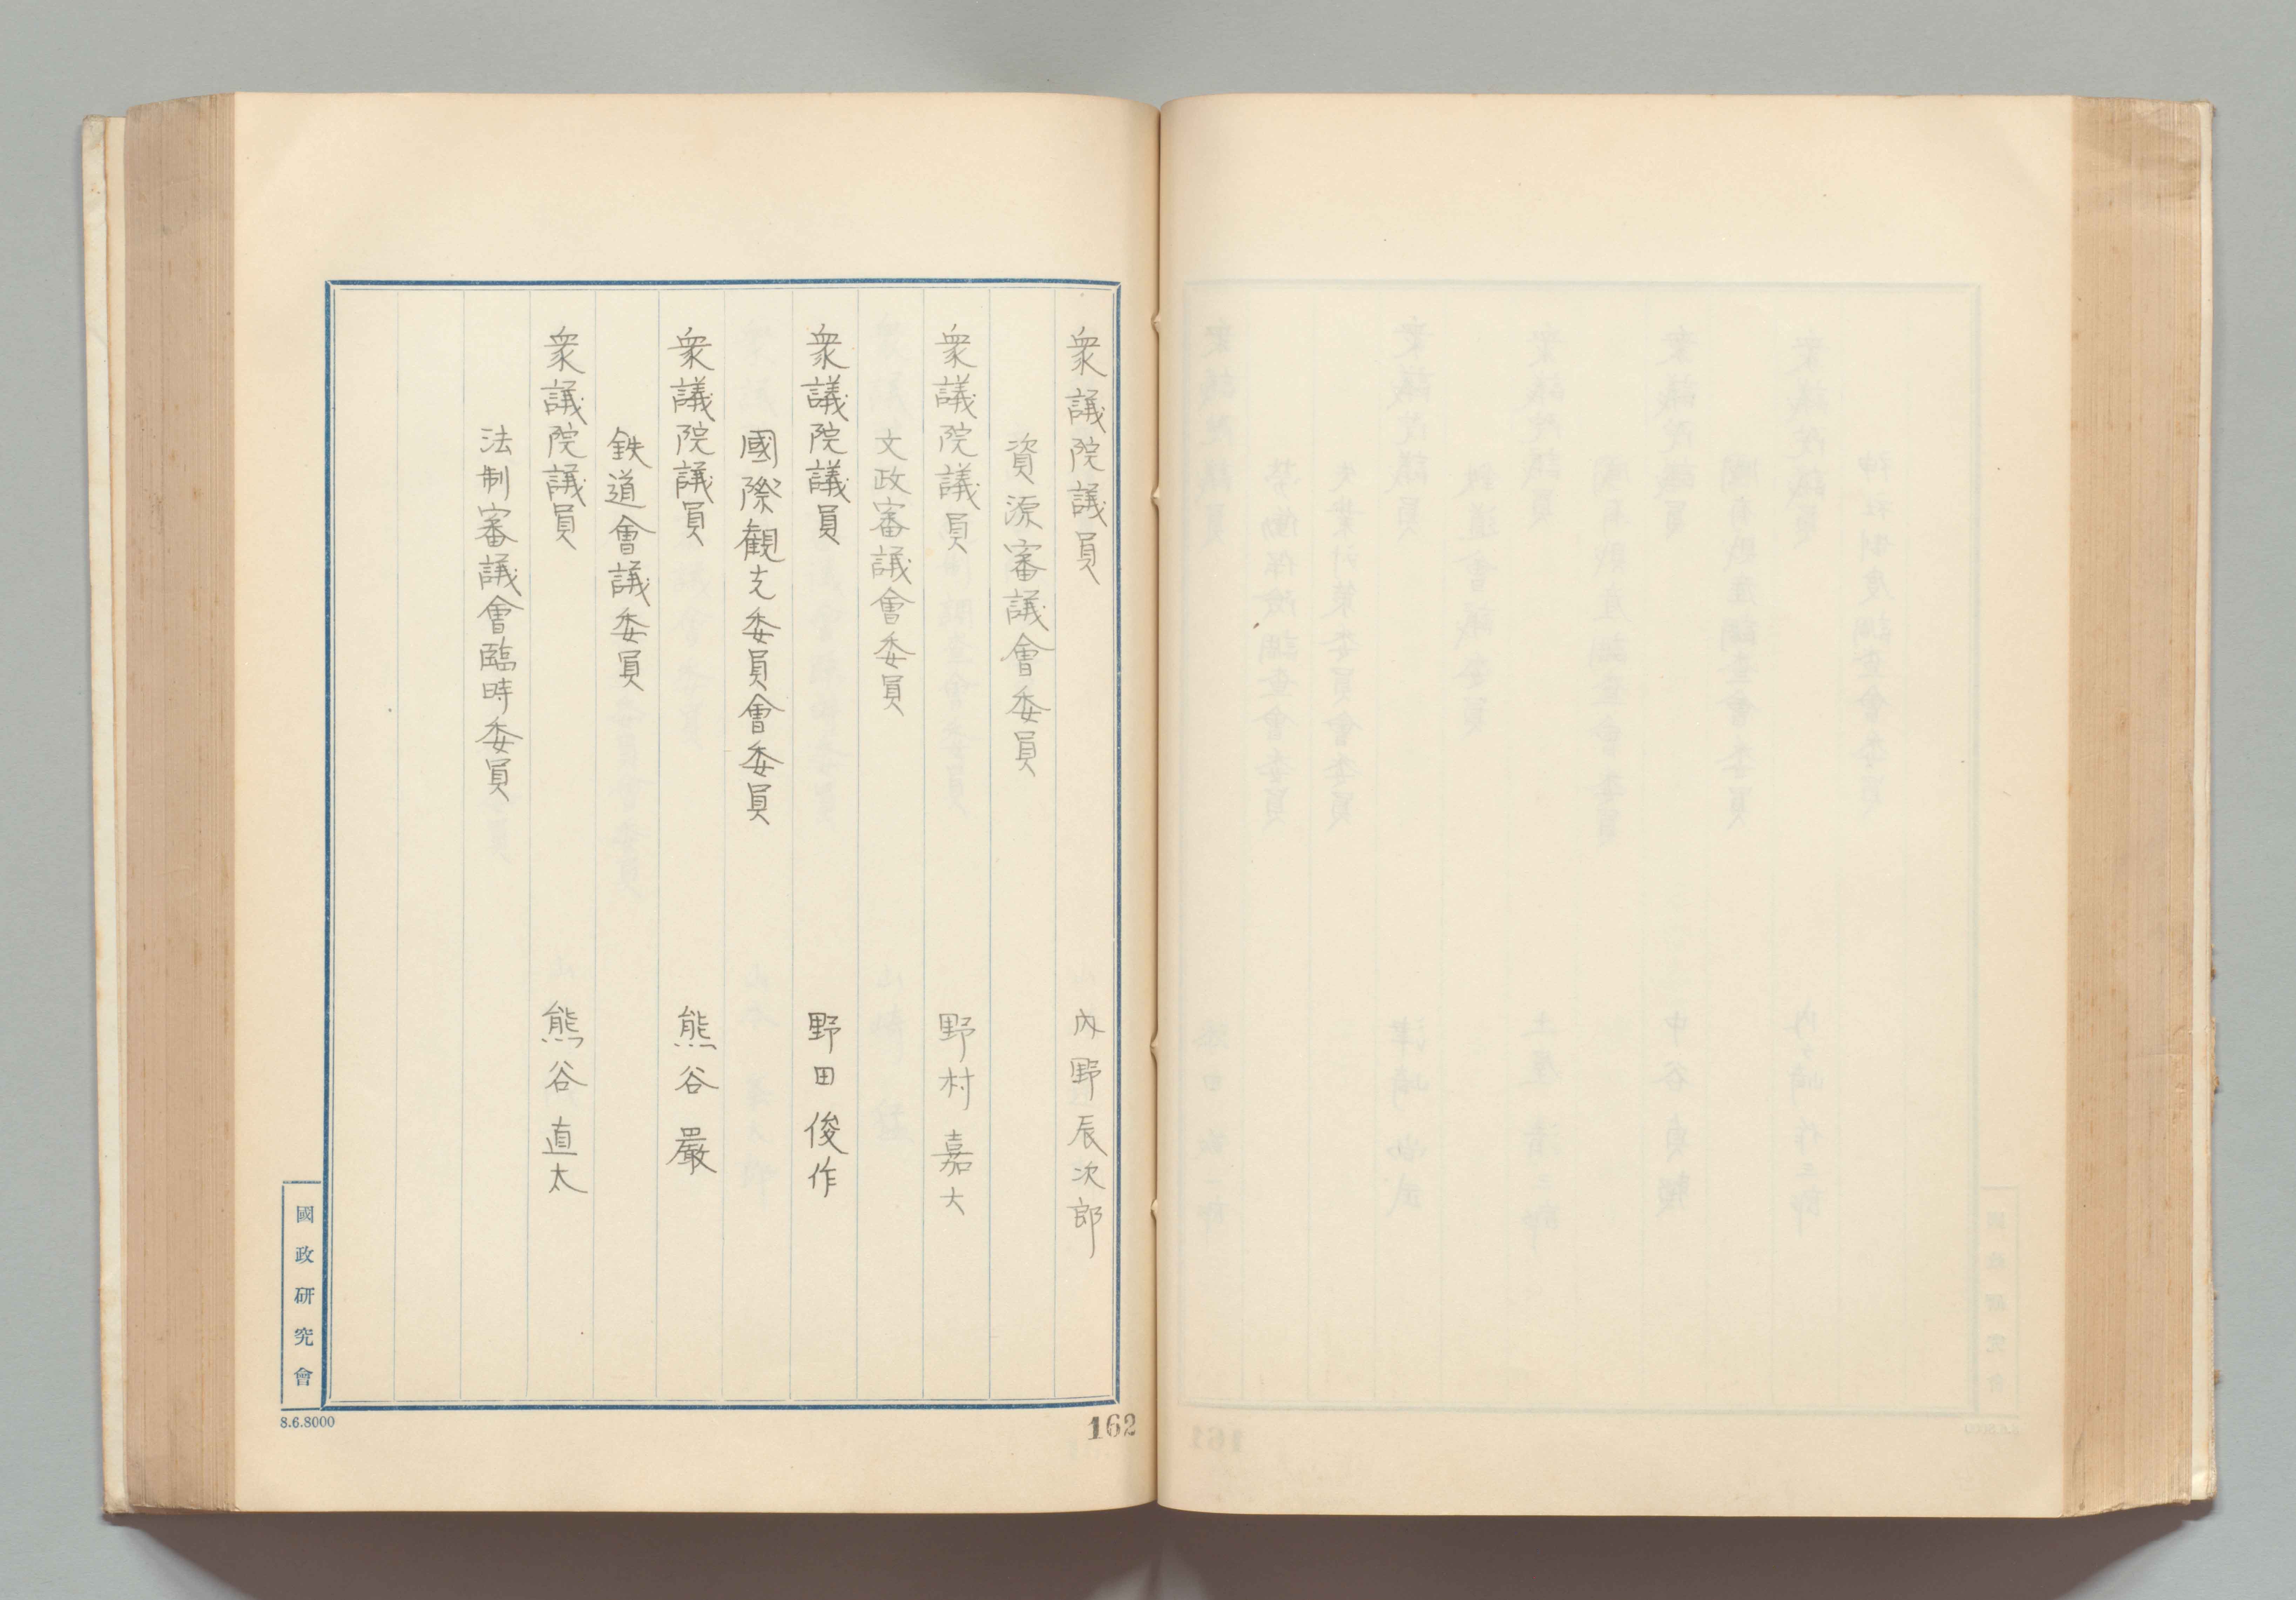 衆議院議員 内野辰次郎
資源審議會委員
衆議院議員 野村嘉六
文政審議會委員
衆議院議員 野田俊作
國際観光委員會委員
衆議院議員 熊谷巖
鉄道會議委員
衆議院議員 熊谷直太
法制審議會臨時委員
國政研究會
8.6.8000
162